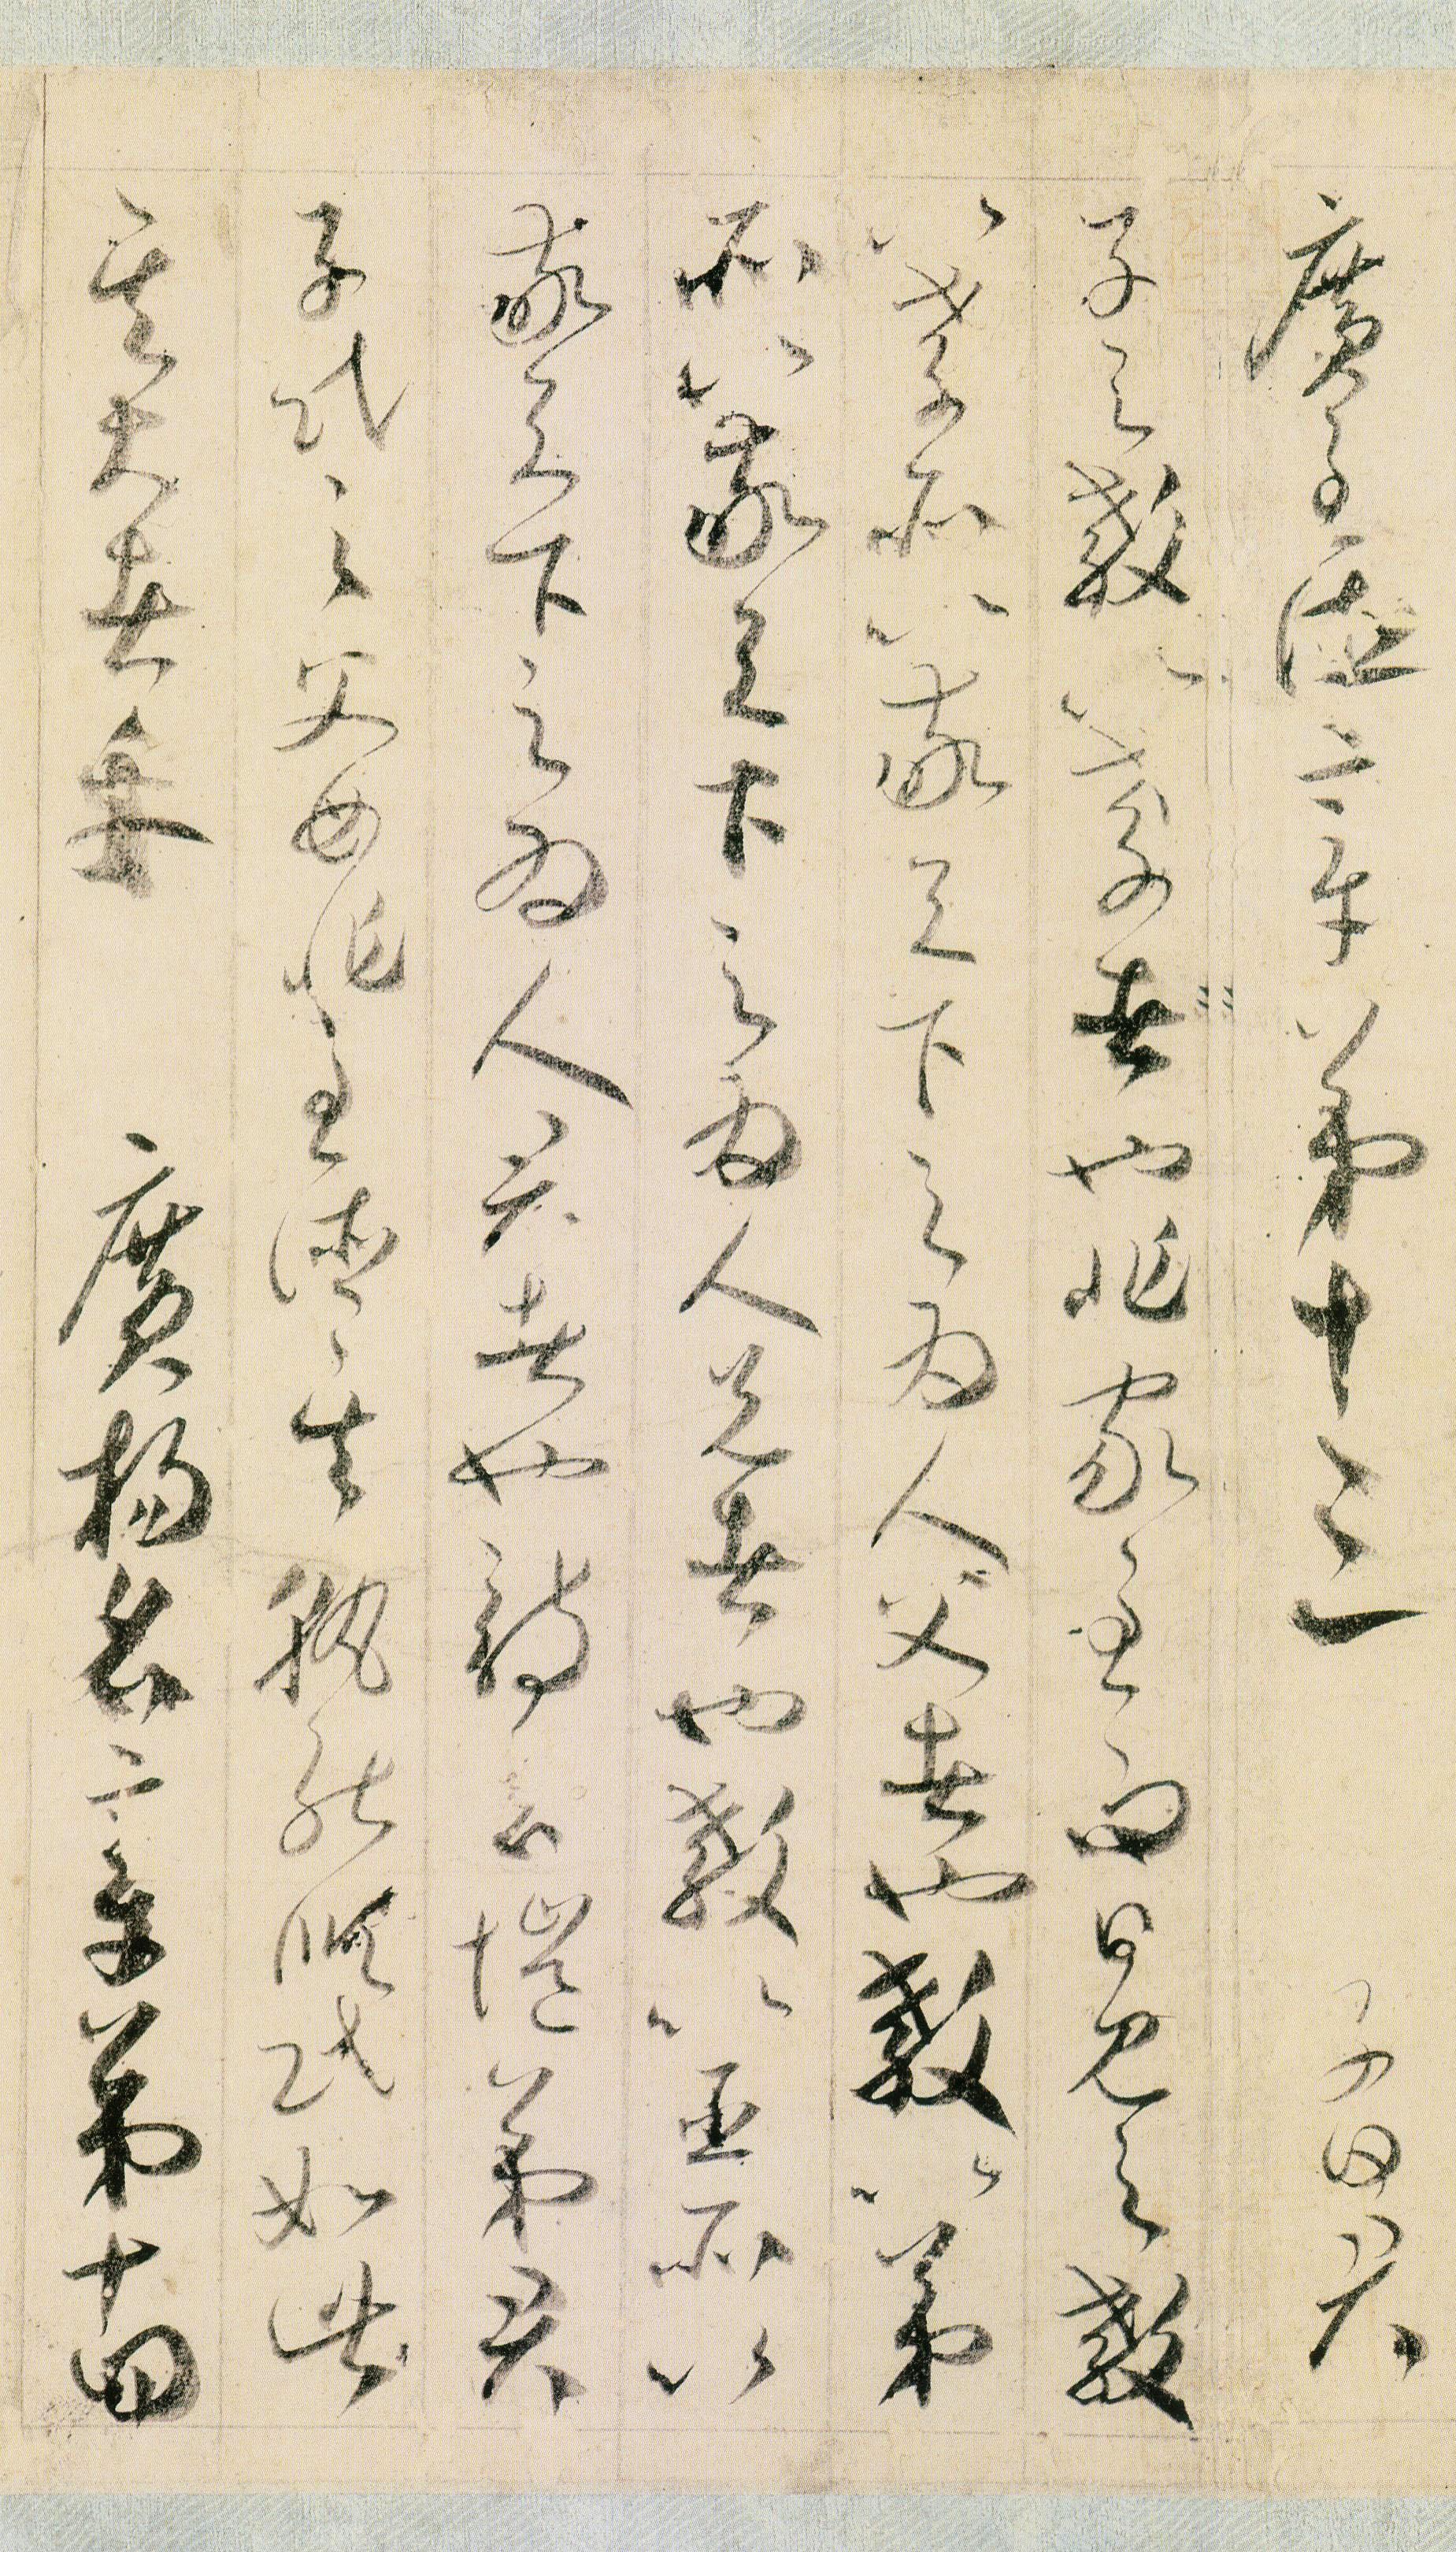 廣至德章第十三　子曰君
子之教以孝者也非家至而日見之教
以孝所以敬天下之為人父者也教以弟
所以敬天下之為人兄者也教以臣所以
敬天下之為人君者也詩云愷弟君
子民之父母非至德其孰能順民如此
其大者乎　廣揚名章第十四